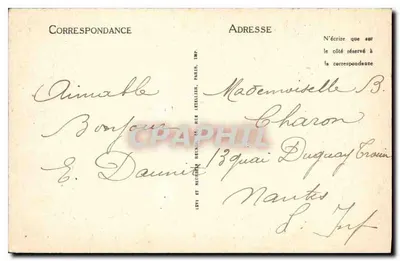 CORRESPONDANCE
ADRESSE
N'écrire que sur
le côté réservé à
la correspondance
Aimable
Bonjour
E. Daunit
LEVY ET NEURDEIN RÉUNIS, 44, RUE LETELLIER, PARIS, IMP.
Mademoiselle B.
Charon
13 quai Duguay Trouin
Nantes
L. Inf
CPARAMA